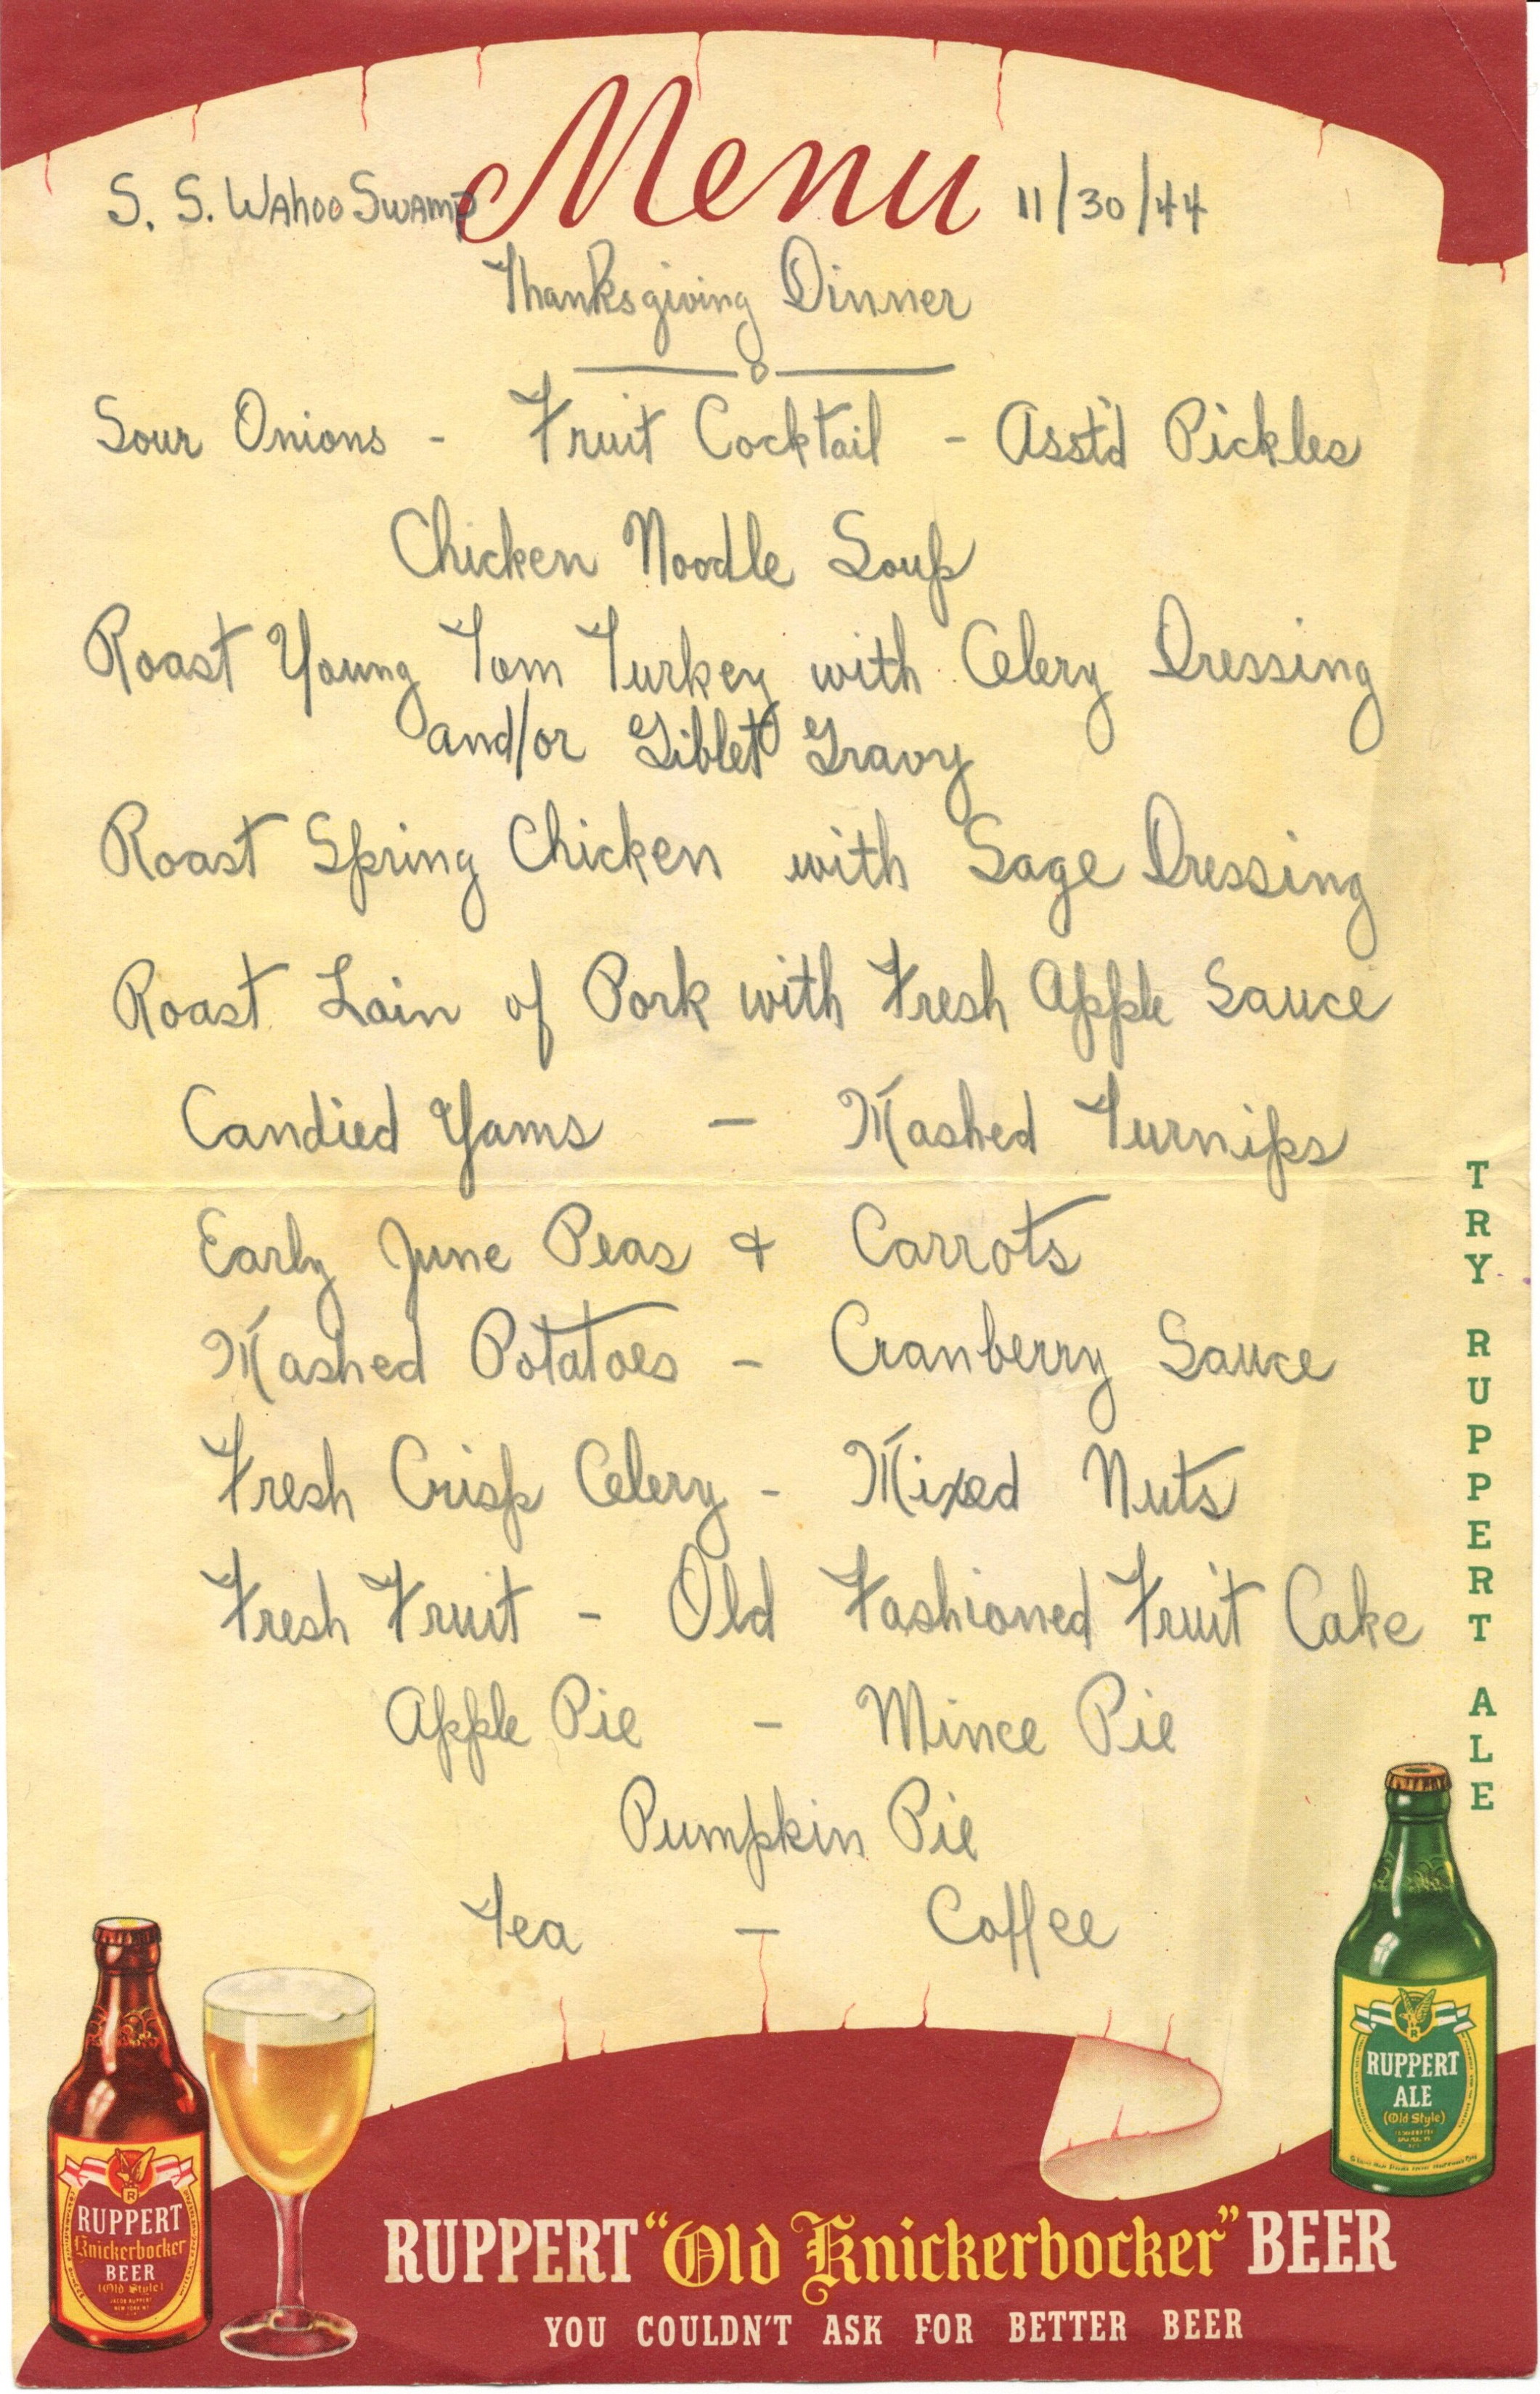 Menu
S. S. Wahoo Swamp 11/30/44
Thanksgiving Dinner
Sour Onions - Fruit Cocktail - Asst'd Pickles
Chicken Noodle Soup
Roast Young Tom Turkey with Celery Dressing
and/or Giblet Gravy
Roast Spring Chicken with Sage Dressing
Roast Loin of Pork with Fresh Apple Sauce
Candied Yams - Mashed Turnips
Early June Peas & Carrots
Mashed Potatoes - Cranberry Sauce
Fresh Crisp Celery - Mixed Nuts
Fresh Fruit - Old Fashioned Fruit Cake
Apple Pie - Mince Pie
Pumpkin Pie
Tea - Coffee
TRY RUPPERT ALE
RUPPERT
ALE
(Old Style)
RUPPERT
Knickerbocker
BEER
(Old Style)
JACOB RUPPERT
RUPPERT "Old Knickerbocker" BEER
YOU COULDN'T ASK FOR BETTER BEER